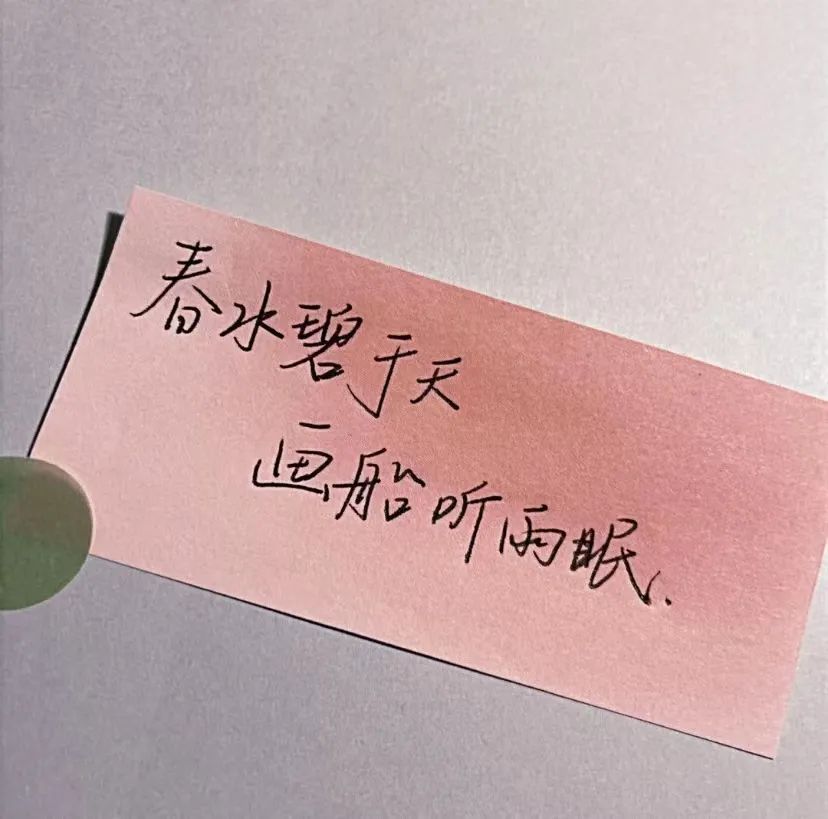 春水碧于天
画船听雨眠.